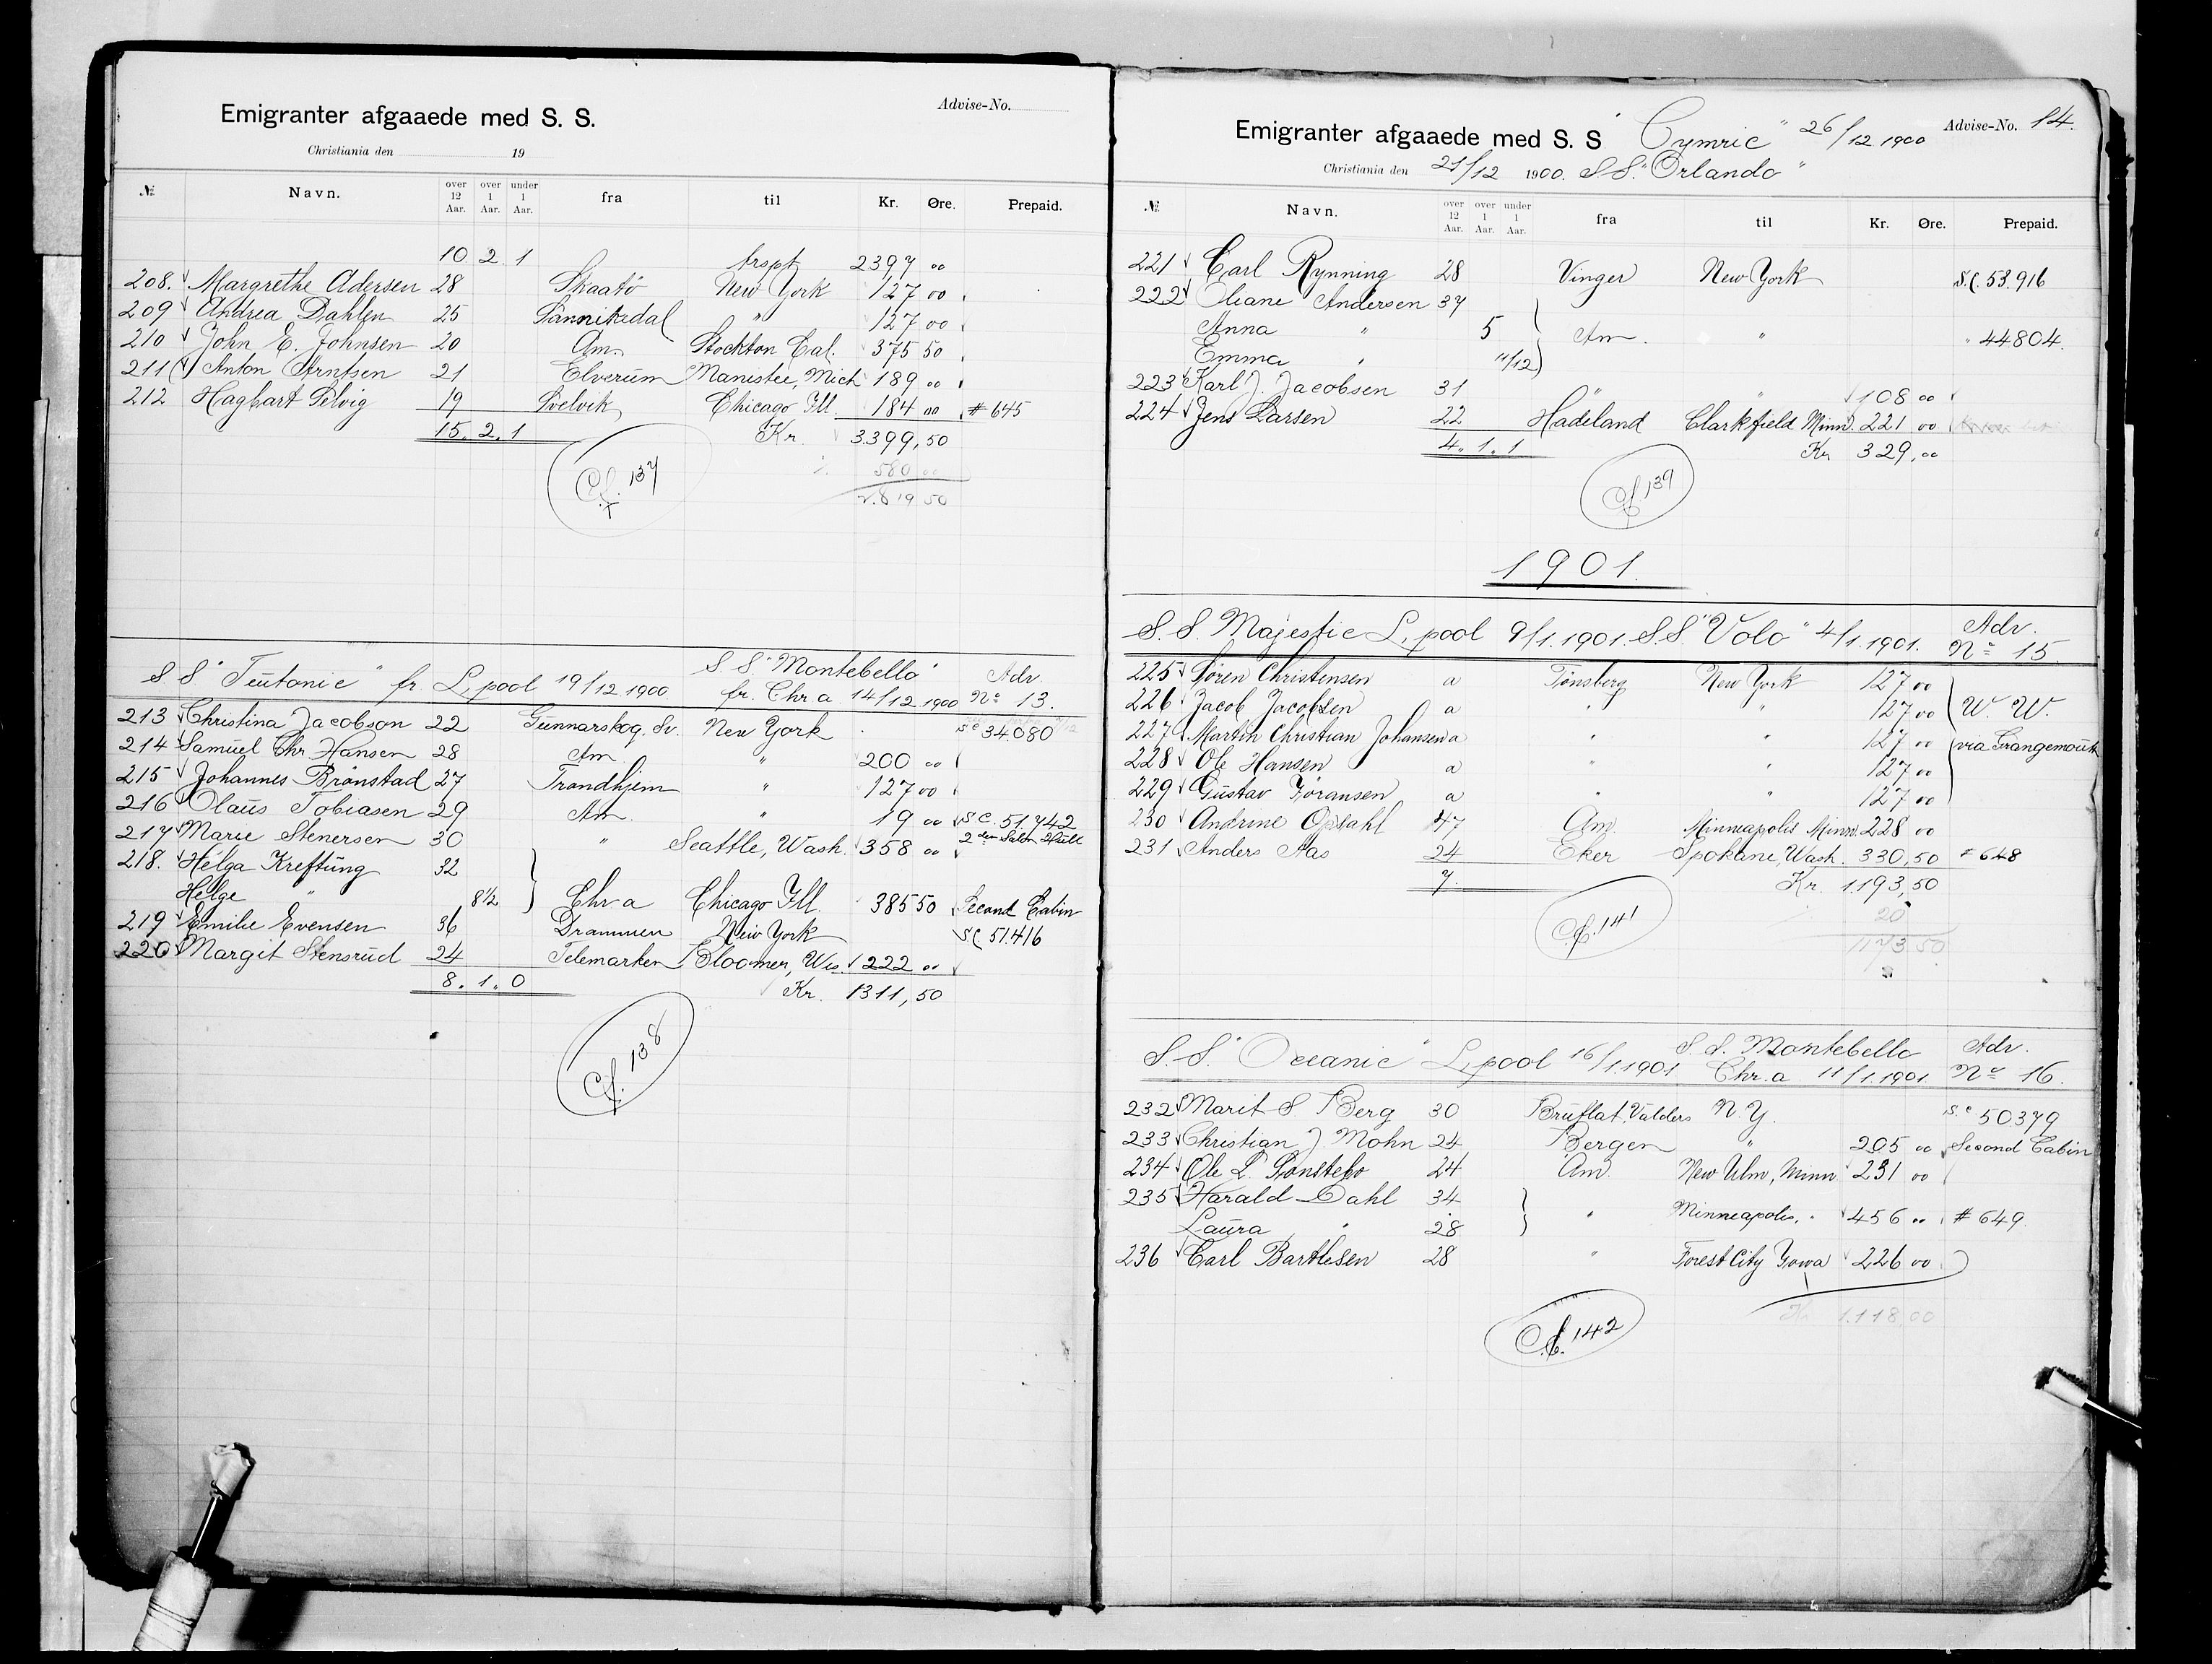 Emigranter afgaaede med S. S.
Advise-No.
Christiania den 19
№ Navn. over 12 Aar. over 1 Aar. under 1 Aar. fra til Kr. Øre. Prepaid.
10 2 1 trspt 2397 00
208. Margrethe Adersen 28 Skaatö New York 127 00
209 Andrea Dahlen 25 Sannikedal " 127 00
210 John E. Johnsen 20 Am. Stockton Cal. 375 50
211 Anton Arntsen 21 Elverum Manistee, Mich 189 00
212 Hagbart Selvig 19 Svelvik Chicago Ill. 184 00 # 645
15. 2. 1 Kr. 3399,50
Cf. 137
580 00
2.819 50
S S "Teutonic" fr. L.pool 19/12 1900 S S "Montebello" fr. Chr.a 14/12 1900 Adv. No 13.
213 Christina Jacobson 22 Gunnarskog. Sv. New York S.C 34.080
214 Samuel Chr. Hansen 28 Am. " 200 00
215 Johannes Brönstad 27 Trondhjem " 127 00
216 Olaus Tobiasen 29 Am. " 19 00 S.C. 51742
217 Marie Stenersen 30 " Seattle, Wash. 358 00
218. Helga Kreftung 32
Helge " 8½ Chr a Chicago Ill. 385 50 Second Cabin
219 Emilie Evensen 36 Drammen New York S.C. 51.416
220 Margit Stensrud 24 Telemarken Bloomer, Wis 222 00
8. 1. 0 Kr. 1311,50
Cf. 138
Emigranter afgaaede med S. S "Cymric" 26/12 1900 Advise-No. 14.
Christiania den 21/12 1900. S.S. "Orlando"
№ Navn. over 12 Aar. over 1 Aar. under 1 Aar. fra til Kr. Øre. Prepaid.
221 Carl Rynning 28 Vinger New York S.C. 53.916
222 Oliane Andersen 37
Anna " 5 Am. " " 44804.
Emma " 11/12
223 Karl J. Jacobsen 31 " " 108 00
224 Jens Larsen 22 Hadeland Clarkfield Minn. 221 00
4. 1. 1 Kr 329,00
Cf. 139
1901.
S. S. Majestic L.pool 9/1.1901. S.S. "Volo" 4/1.1901. Adv. No 15.
225 Sören Christensen a Tönsberg New York 127 00
226 Jacob Jacobsen a " " 127 00 W. W.
227 Martin Christian Johansen a " " 127 00 via Grangemouth
228 Ole Hansen a " " 127 00
229 Gustav Göransen a " " 127 00
230 Andrine Opdahl 47 Am. Minneapolis Minn. 228 00
231 Anders Aas 24 Eker Spokane, Wash. 330,50 # 648
7. Kr. 1.193,50
Cf. 141
20
1173.50
S. S. "Oceanic" L.pool 16/1.1901 S. S. Montebello Chr.a 11/1.1901 Adv. No 16.
232 Marit S Berg 30 Bruflat. Valders N. Y. S.C 50379
233 Christian J Mohn 24 Bergen " 205 00 Second Cabin
234 Ole L. Sönstebo 24 Am. New Ulm, Minn. 231 00
235 Harald Dahl 34
Laura " 28 " Minneapolis, " 456 00 # 649.
236 Carl Barthesen 28 " Forest City Iowa 226 00
Kr 1.118,00
Cf. 142